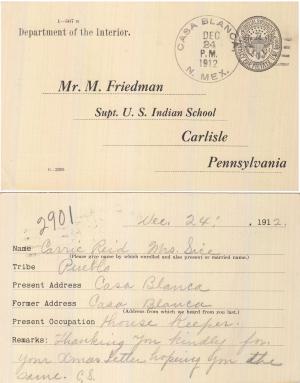 1-607 R
Department of the Interior.
CASA BLANCA
DEC
24
P.M.
1912
N. MEX.
Mr. M. Friedman
Supt. U. S. Indian School
Carlisle
Pennsylvania
2901
Dec. 24' , 1912.
Name Carrie Reid Mrs.
(Please give name by which enrolled and also present or married name.)
Tribe Pueblo
Present Address Casa Blanca
Former Address Casa Blanca
(Address from which we heard you last.)
Present Occupation House Keeper.
Remarks: Thanking You kindly for
Your Xmas letter hoping You the
same.